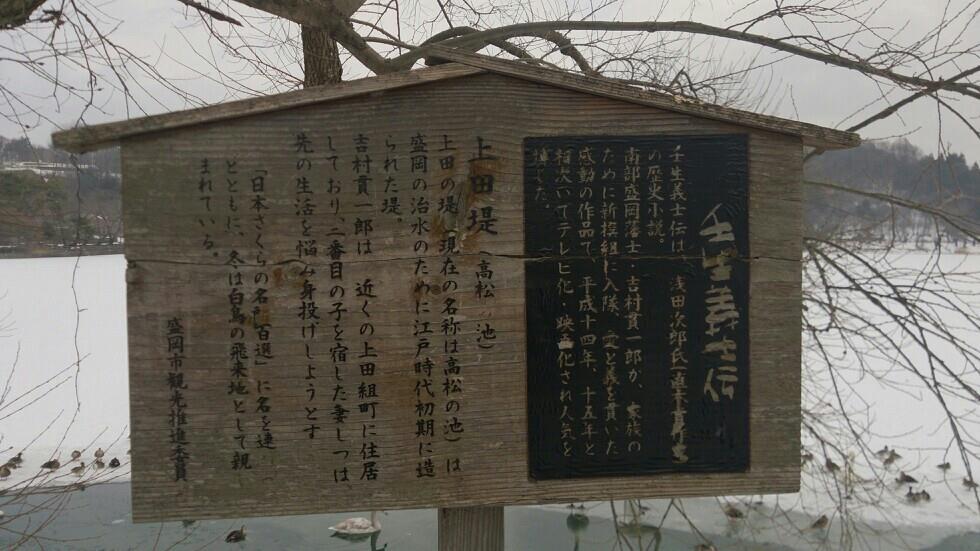 壬生義士伝
壬生義士伝は、浅田次郎氏(直木賞作
の歴史小説。
南部盛岡藩士・吉村貫一郎が、家族の
ために新撰組に入隊、愛と義を貫いた
感動の作品で、平成十四年、十五年と
相次いでテレビ化・映画化され人気を
博した。
上田堤(高松の池)
上田の堤(現在の名称は高松の池)は
盛岡の治水のために江戸時代初期に造
られた堤。
吉村貫一郎は 近くの上田組町に住居
しており、二番目の子を宿した妻しづは、
先の生活を悩み身投げしようとす
「日本さくらの名所百選」に名を連
ねるとともに、冬は白鳥の飛来地として親
まれている。
盛岡市観光推進委員